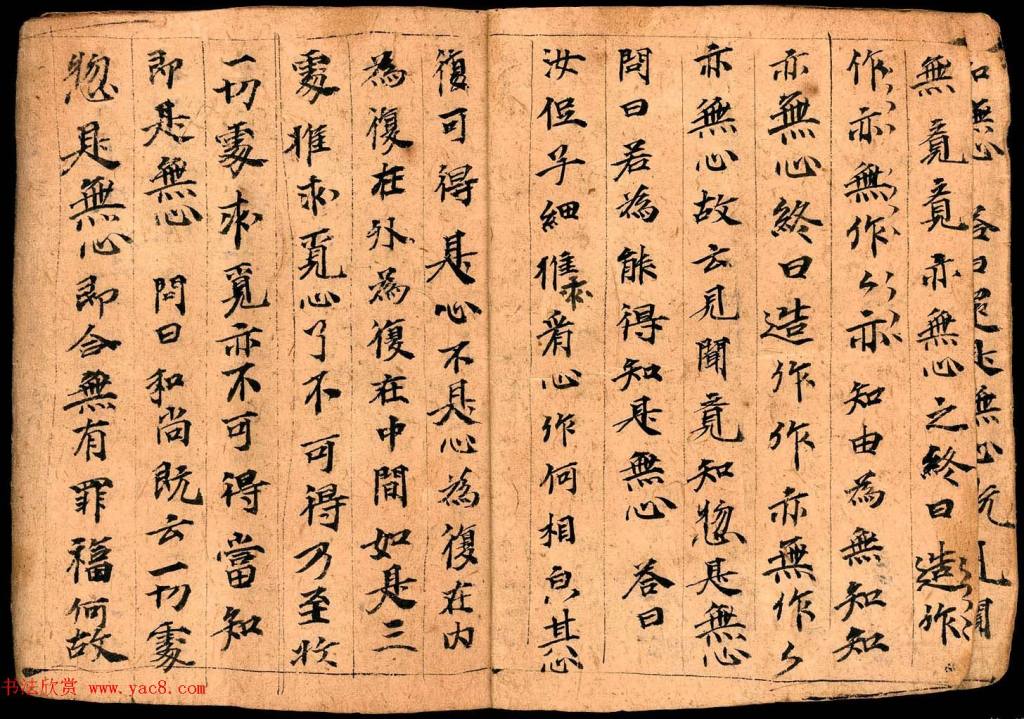 無心 答曰 無心既 見聞
無竟竟亦無心之終日造作
作亦無作〻亦知由為無知知
亦無心終日造作作亦無作〻
亦無心故云見聞竟知惣是無心
問曰若為能得知是無心 答曰
汝但子細推求看心作何相皃其心
復可得是心不是心為復在內
為復在外為復在中間如是三
處推求覓心了不可得乃至於
一切處求覓亦不可得當知
即是無心 問曰和尚既云一切處
惣是無心即合無有罪福何故
书法欣赏 www.yac8.com